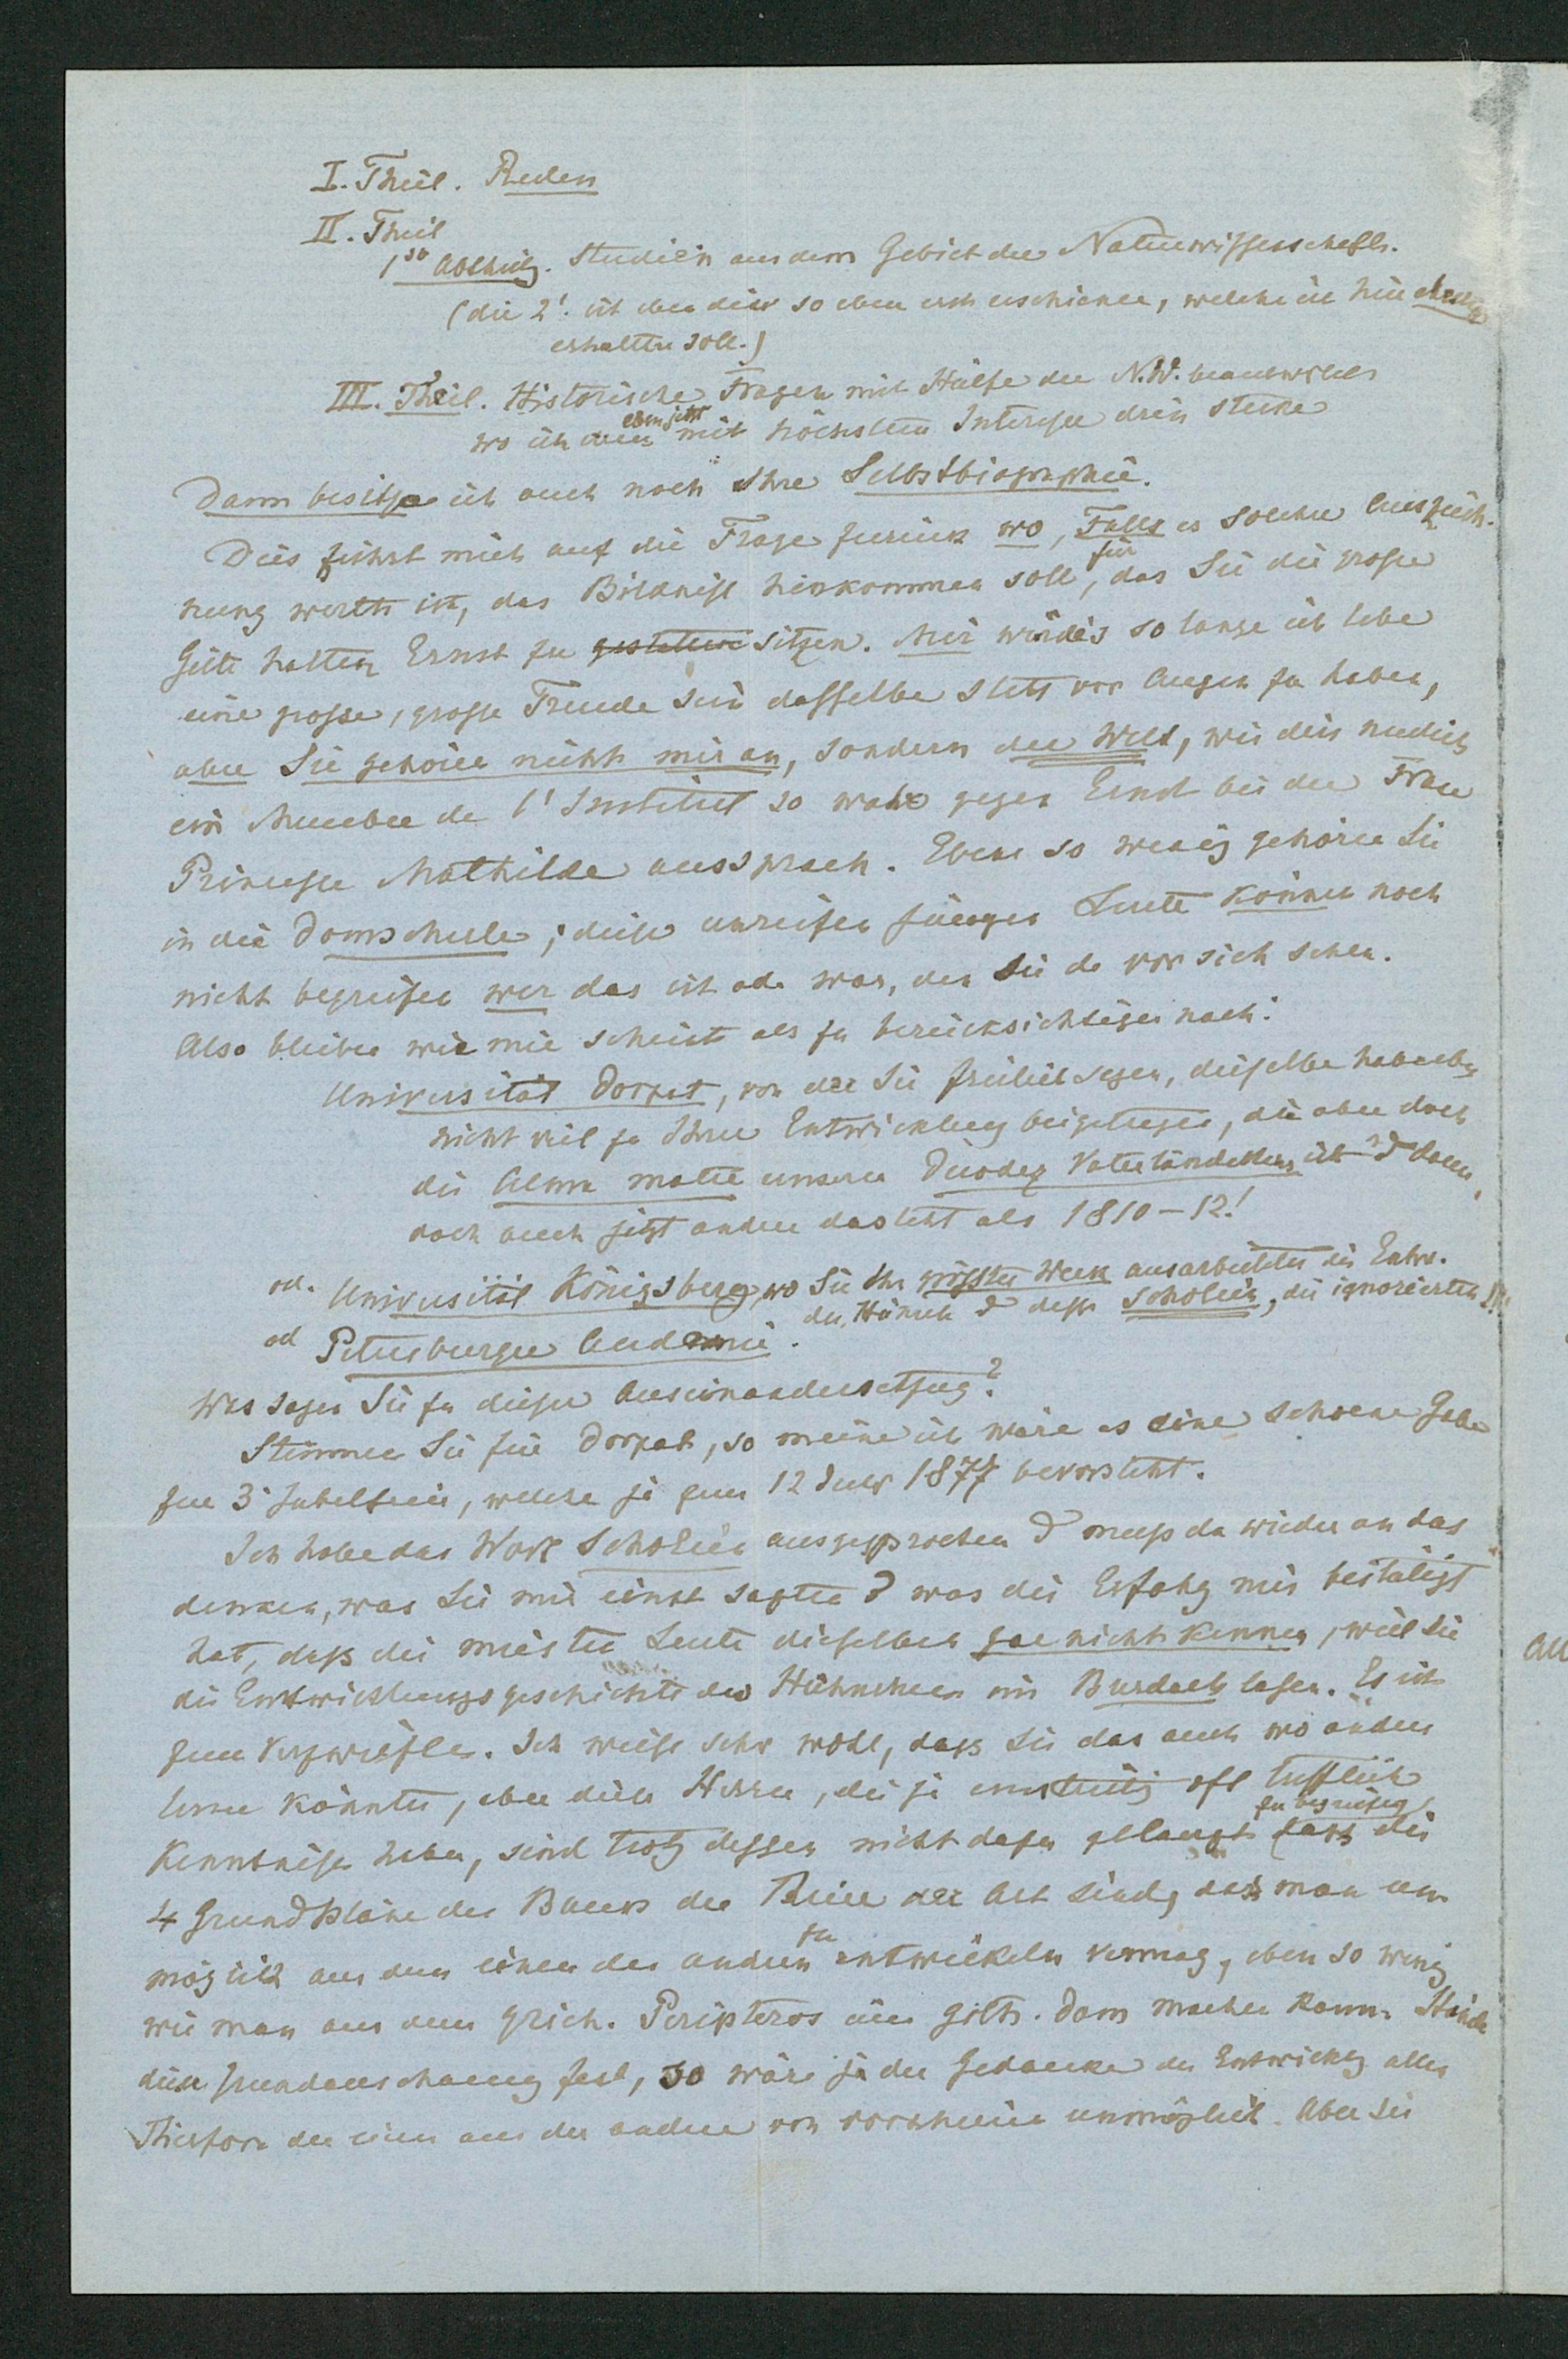 I. Theil. Reden
II. Theil
1ste Abtheilg. Studien aus dem Gebiet der Naturwissenschafft.
(die 2t. ist eben so eben erst erschienen, welche ich hier
erhalten soll.)
III. Theil. Historische Fragen mit Hülfe der N.W. beantwortet
wo ich eben jetzt mit höchstem Interesse drin stecke
Dann besitze ich auch noch Ihre Selbstbiographie.
Dies führt mich auf die Frage zurück wo, Falls es solcher Auszeich-
nung werth ist, das Bildniss hinkommen soll, für das Sie die grosse
Güte hatten Ernst zu gestatten sitzen. Mir würde's so lange ich lebe
eine grosse, grosse Freude sein dasselbe stets vor Augen zu haben,
aber Sie gehören nicht mir an, sondern der Welt, wie dies neulich
ein Membre de l'Institut so wahr gegen Ernst bei der Frau
Princesse Mathilde aussprach. Eben so wenig gehören Sie
in die Domschule; diese unreifen jungen Leute können noch
nicht begreifen wer das ist od. war, den Sie da vor sich sehen.
Also bleiben wie mir scheint als zu berücksichtigen nach:
Universität Dorpat, von der Sie freilich sagen, dieselbe habe eben
nicht viel zu Ihrer Entwicklung beigetragen, die aber doch
die Alma mater unseres Duodez Vaterländchens ist & dann
doch auch jetzt anders dasteht als 1810–12!
od. Universität Königsberg, wo Sie Ihr grösstes Werk ausarbeiteten die Entw.
des Hühnch & dess Scholien, die ignorierten!!!
od Petersburger Academie.
Was sagen Sie zu dieser Auseinandersetzung?
Stimmen Sie für Dorpat, so meine ich wäre es eine schoene Gabe
zur 3t Jubelfeier, welche ja zum 12 Decbr 1877 bevorsteht.
Ich habe das Wort Scholien ausgesprochen & muss da wieder an das
denken, was Sie mir einst sagten & was die Erfahrg mir bestätigt
hat, dass die meisten Leute dieselben gar nicht kennen, weil sie
die Entwicklungsgeschichte des Hühnchen im Burdach lasen. Es ist
zum Verzweiflen. Ich weiss sehr wohl, dass sie das auch wo anders
lernen könnten, aber diese Herren, die ja unstreitig oft trefflich
Kenntnisse haben, sind trotz dessen nicht dazu gelangt zu begreifen, dass die
4 Grundpläne des Baues der Thiere der Art sind, dass man un-
möglich aus dem einen den andern zu entwickeln vermag, eben so wenig
wie man aus dem griech. Peripteros ein goth. Dom machen kann. Stände
diese Grundanschauung fest, so wäre ja der Gedanke der Entwicklg aller
Thierform der einen aus der andern von vornherein unmöglich. Aber sie